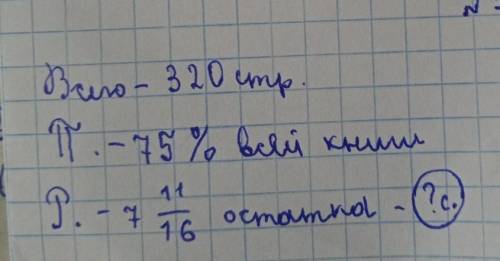 Всего - 320 стр.
П. - 75% всей книги
Р. - 7 11/16 остатка - ?с.